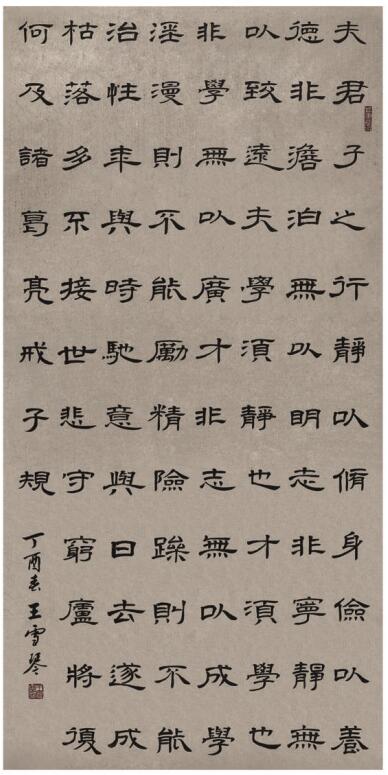 夫君子之行靜以脩身儉以養
德非澹泊無以明志非寧靜無
以致遠夫學須靜也才須學也
非學無以廣才非志無以成學
淫漫則不能勵精險躁則不能
治性年與時馳意與日去遂成
枯落多不接世悲守窮廬將復
何及諸葛亮戒子規
丁酉春王雪琴